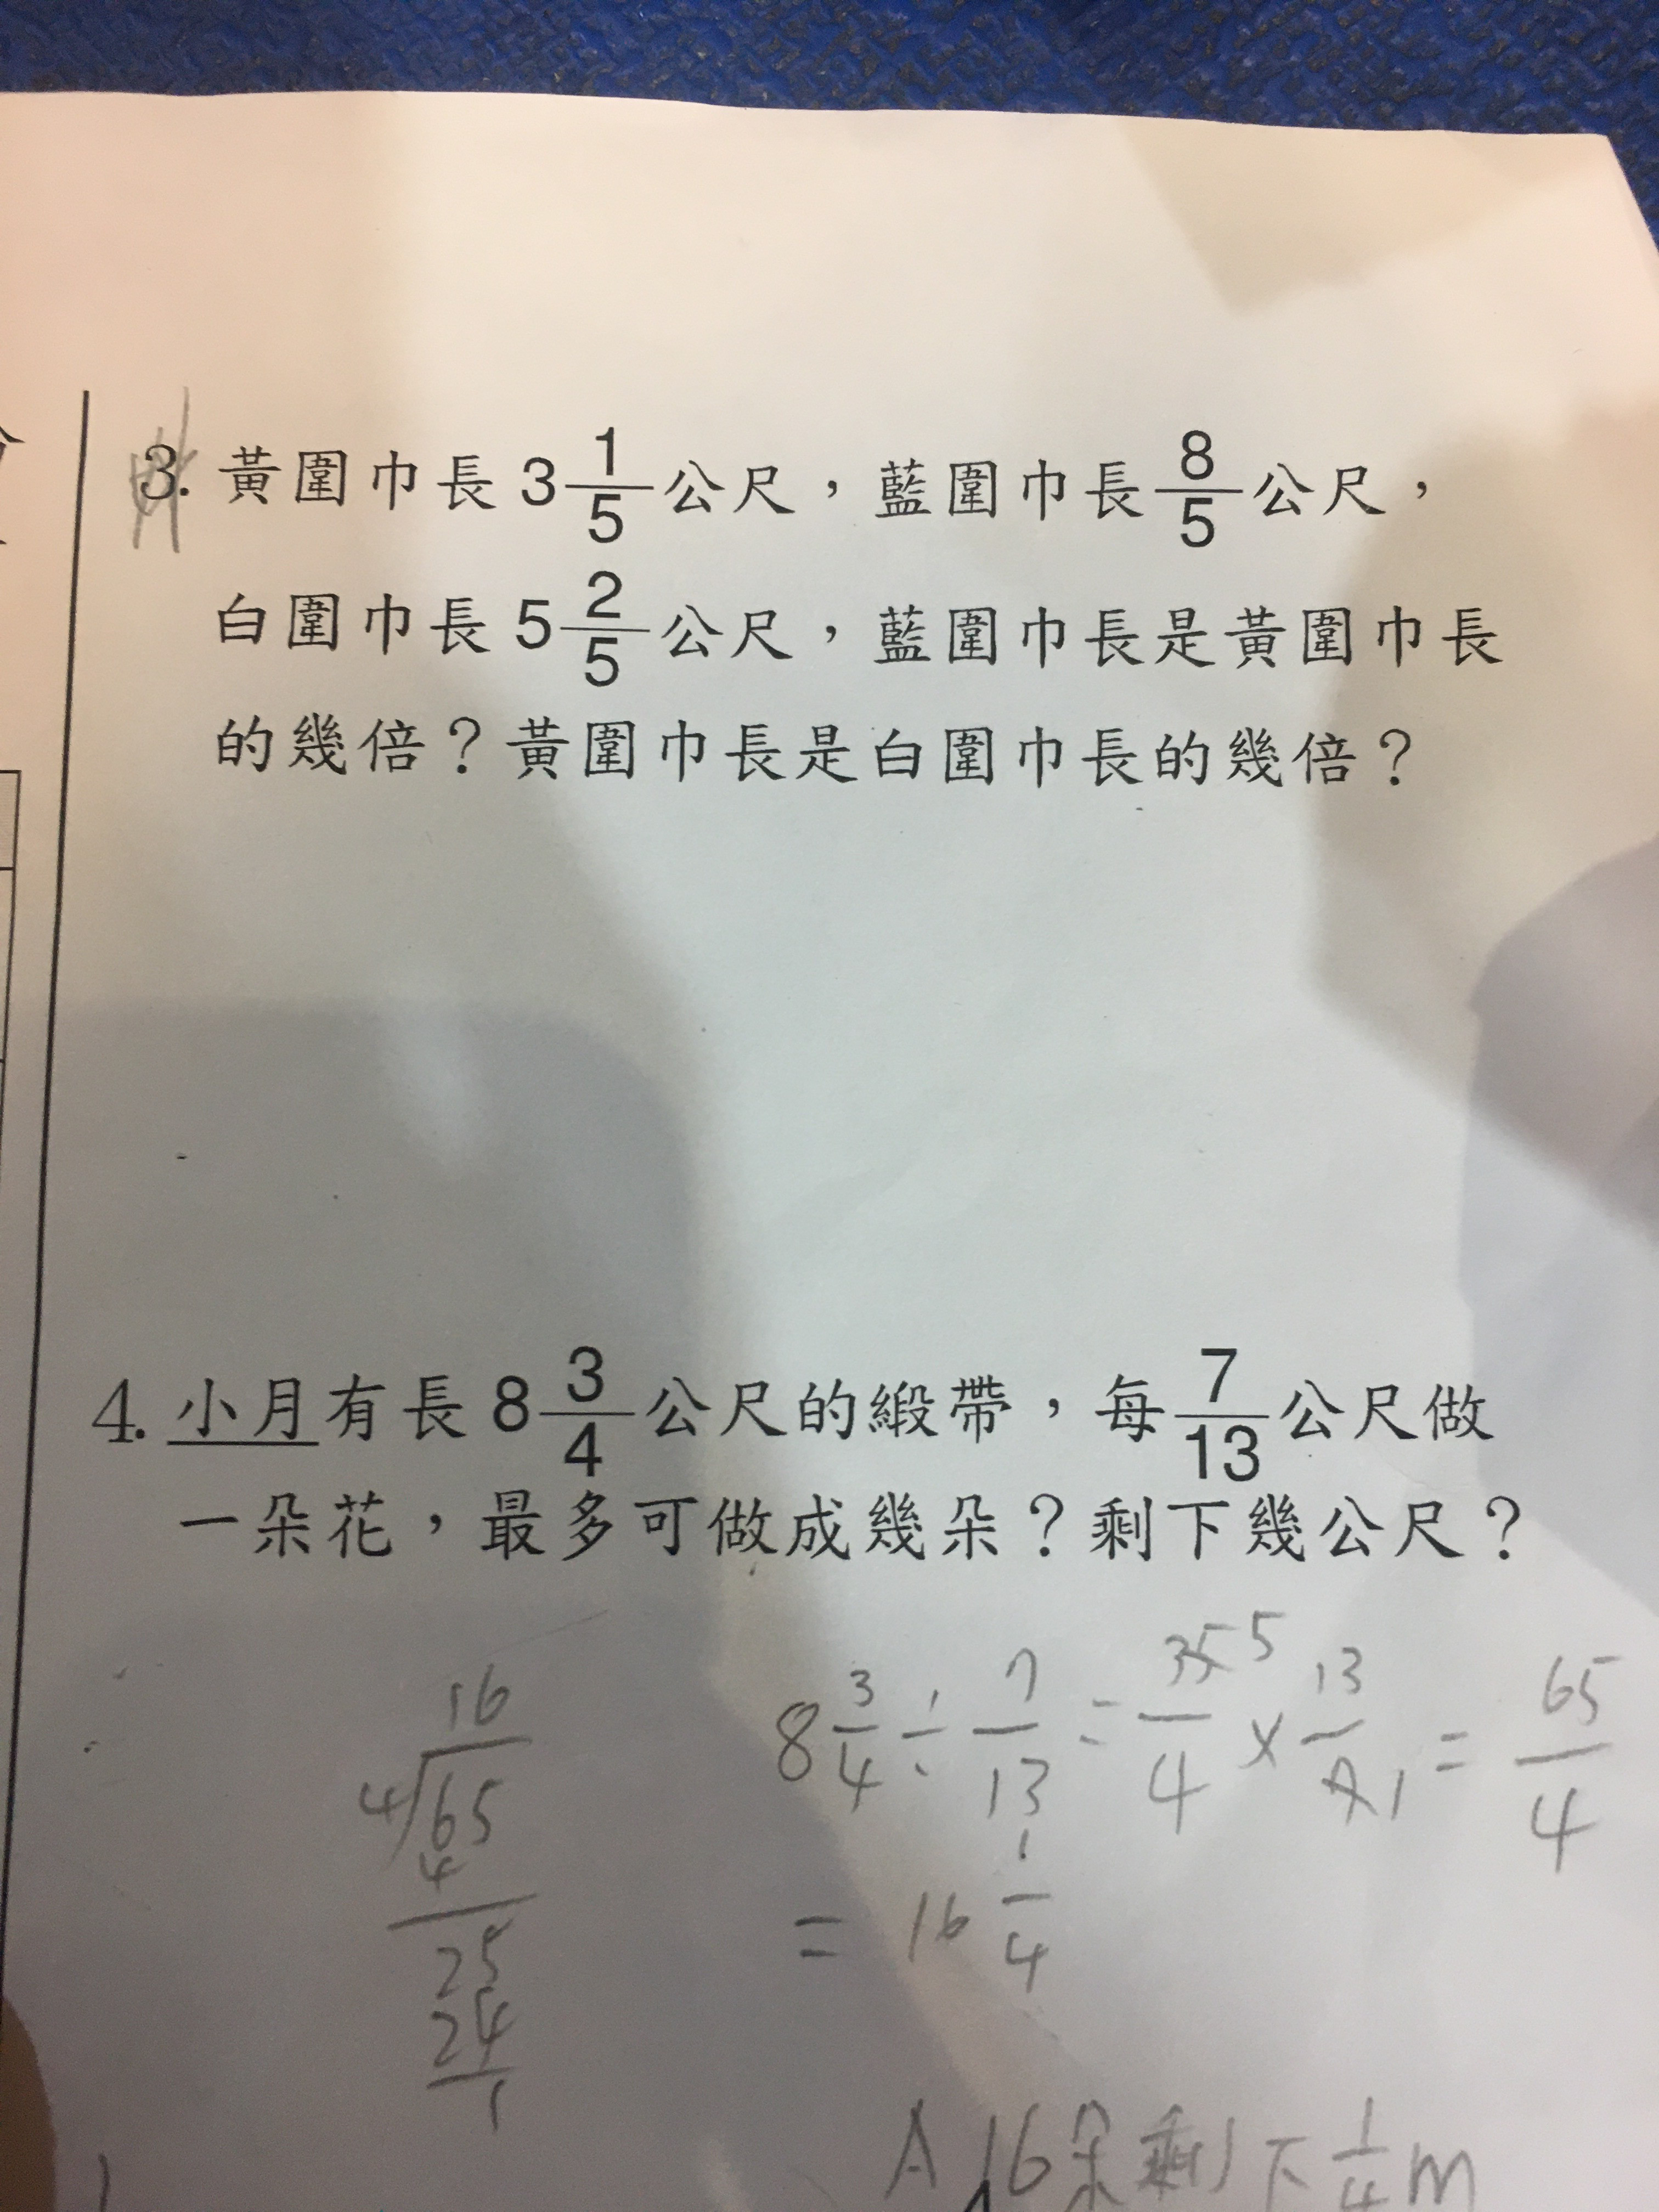 3. 黃圍巾長 3 1/5 公尺，藍圍巾長 8/5 公尺，
白圍巾長 5 2/5 公尺，藍圍巾長是黃圍巾長
的幾倍？黃圍巾長是白圍巾長的幾倍？
4. 小月有長 8 3/4 公尺的緞帶，每 7/13 公尺做
一朵花，最多可做成幾朵？剩下幾公尺？
8 3/4 ÷ 7/13 = 35/4 5 × 13/7 1 = 65/4
= 16 1/4
16
4 65
4
25
24
1
A 16朵剩下 1/4 m